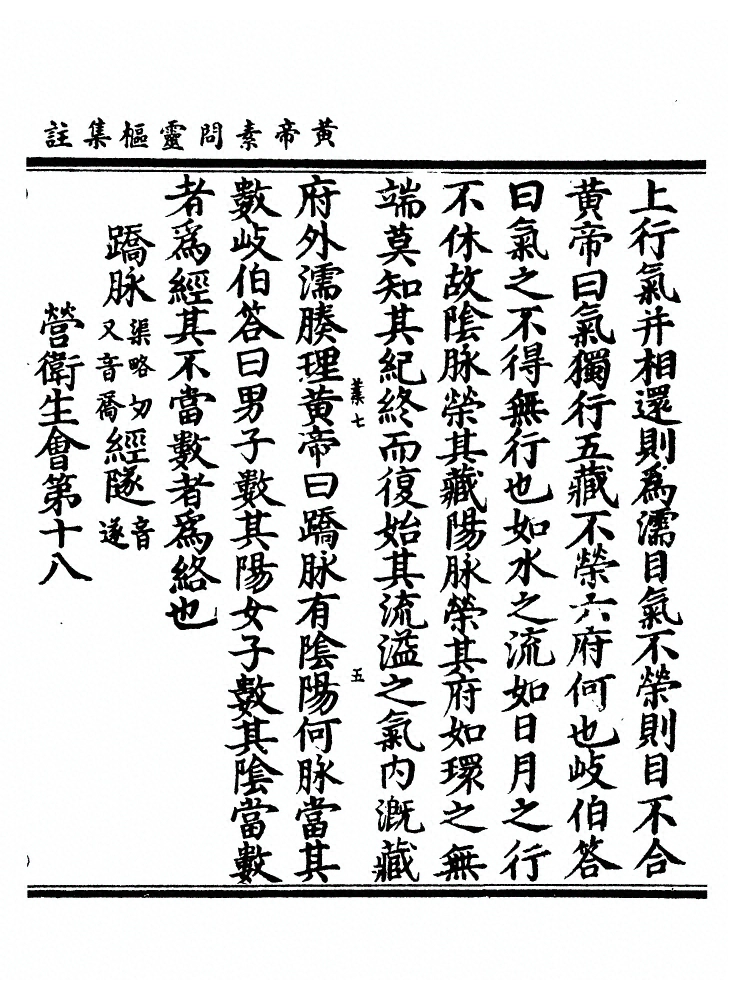 黃帝素問靈樞集註
上行氣并相還則爲濡目氣不榮則目不合
黃帝曰氣獨行五藏不榮六府何也岐伯答
曰氣之不得無行也如水之流如日月之行
不休故陰脉榮其藏陽脉榮其府如環之無
端莫知其紀終而復始其流溢之氣內溉藏
業七
五
府外濡腠理黃帝曰蹻脉有陰陽何脉當其
數岐伯答曰男子數其陽女子數其陰當數
者爲經其不當數者爲絡也
蹻脉渠略切又音喬經隧音遂
營衛生會第十八